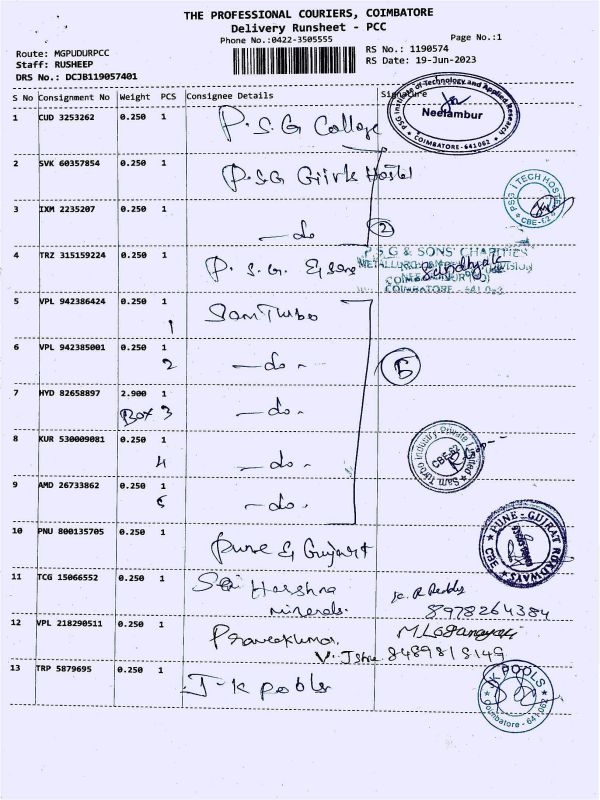 THE PROFESSIONAL COURIERS, COIMBATORE
Delivery Runsheet - PCC
Phone No.:0422-3505555
Page No.:1
Route: MGPUDURPCC
RS No.: 1190574
Staff: RUSHEEP
RS Date: 19-Jun-2023
DRS No.: DCJB119057401
S No Consignment No Weight PCS Consignee Details Signature
1 CUD 3253262 0.250 1 P.S.G College
PSG Institute of Technology and Applied Research
Neelambur
COIMBATORE-641062
2 SVK 60357854 0.250 1 P.S.G Girls Hostel
PSG ITECH HOSTEL
CBE-62
3 IXM 2235207 0.250 1 -do 2
4 TRZ 315159224 0.250 1 P.S.G. & Sons
P S G & SONS' CHARITIES
COIMBATORE - 641 062
5 VPL 942386424 0.250 1 Sam Turbo
1
6 VPL 942385001 0.250 1 -do-
2
5
7 HYD 82658897 2.900 1 -do-
Box 3
8 KUR 530009081 0.250 1 -do-
4
Sam Turbo Industry Private Limited
CBE-62
9 AMD 26733862 0.250 1 -do-
5
10 PNU 800135705 0.250 1 Pune & Gujart
PUNE-GUJRAT ROADWAYS
CBE
11 TCG 15066552 0.250 1 Sai Harshna
minerals.
K. R Reddy
8978264384
12 VPL 218290511 0.250 1 Praveekumar.
8489818149
13 TRP 5879695 0.250 1 J-K pools
JK POOLS
Coimbatore - 641062